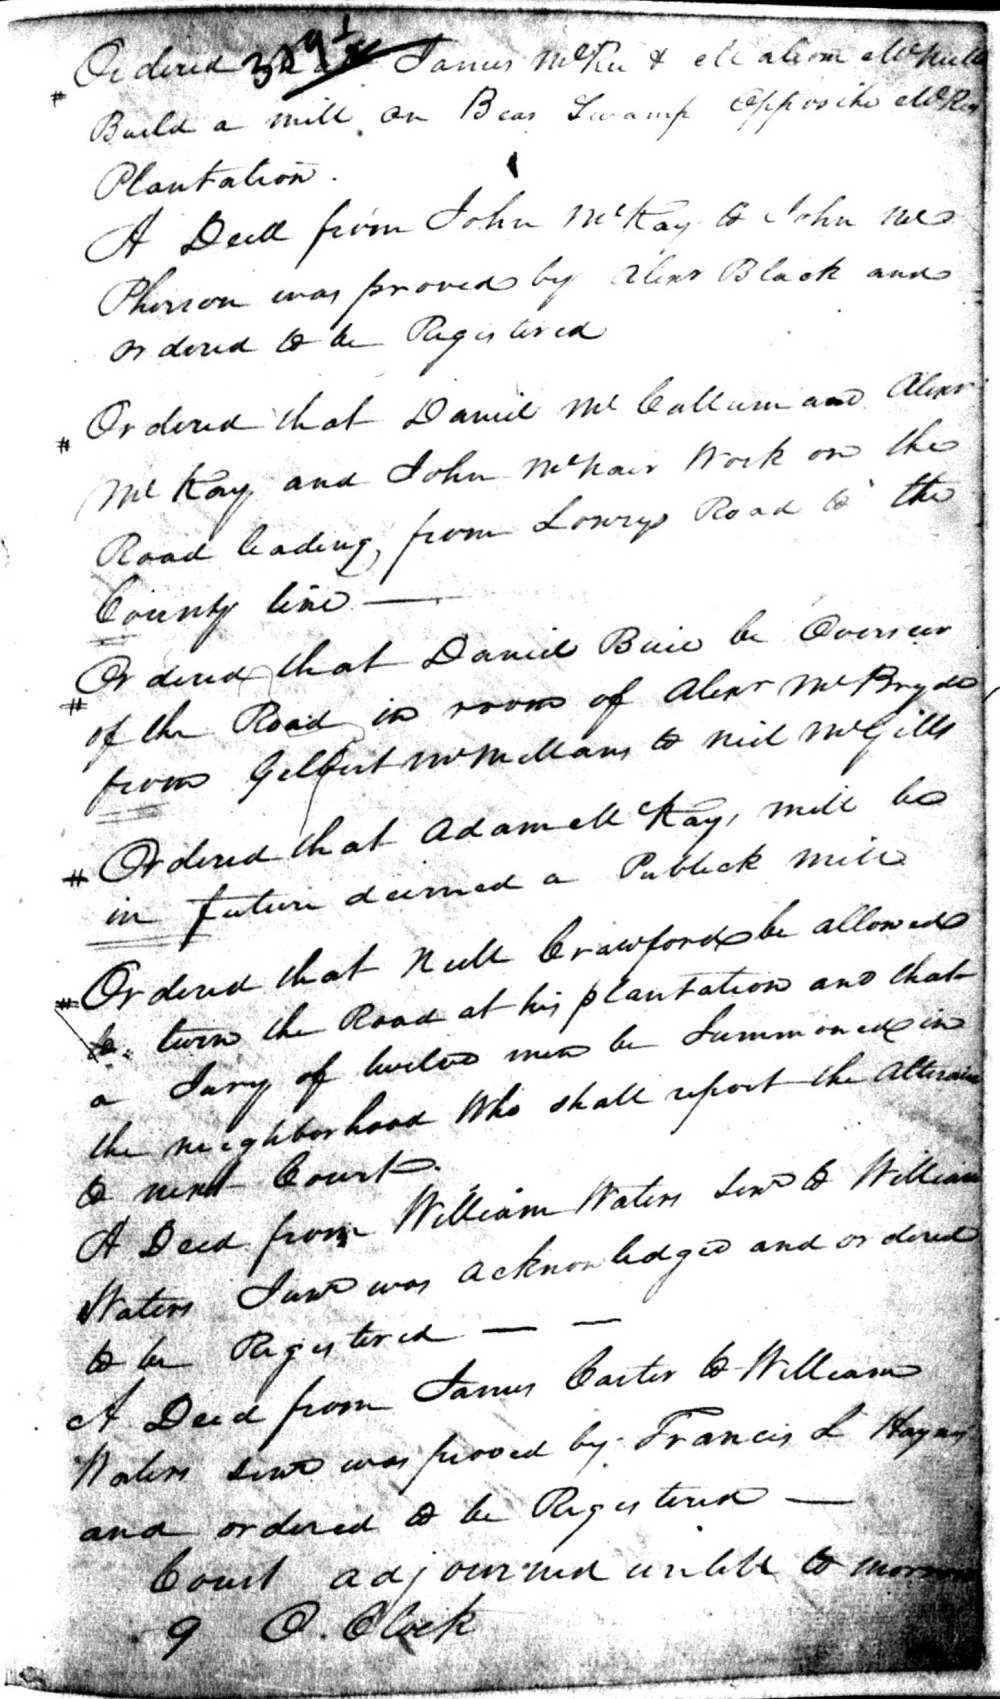 Ordered that James McKee & Malcom McNeill
# Build a mill on Bear Swamp opposite McKees
Plantation.
A Deed from John McKay to John Mc
Pherson was proved by Alexr Black and
ordered to be Registered
# Ordered that Daniel McCallum and Alexr
McKay and John McNair Work on the
Road leading from Lowrys Road to the
County line —
# Ordered that Daniel Buie be Overseer
of the Road in room of Alexr McBryde
from Gilbert McMillans to Neil McGills
# Ordered that Adam McKay, mill be
in future deemed a Publick Mill
# Ordered that Neill Crawford be allowed
to turn the Road at his plantation and that
a Jury of twelve men be Summoned in
the neighborhood Who shall report the
to next Court.
A Deed from William Waters Senr to William
Waters Junr was acknowledged and ordered
to be Registered — —
A Deed from James Carter to William
Waters Senr was proved by Francis L Haynes
and ordered to be Registered —
Court adjourned untill to morrow
9 O. Clock